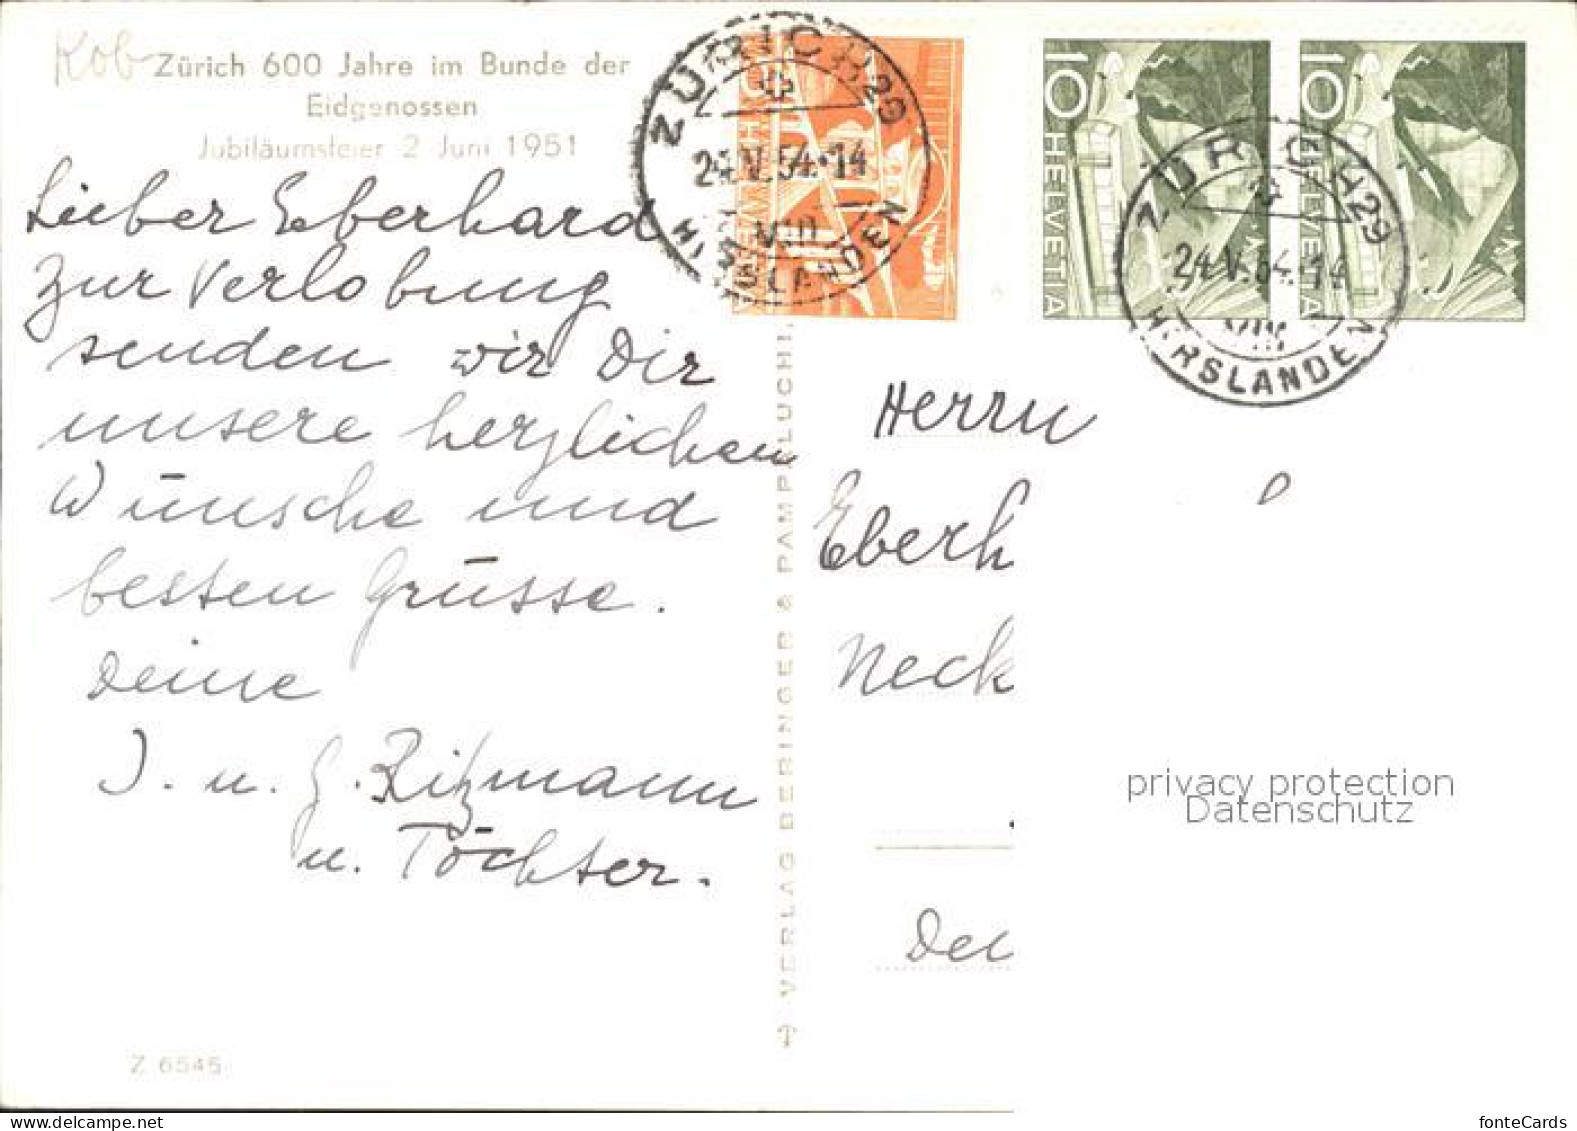 Kob Zürich 600 Jahre im Bunde der
Eidgenossen
Jubiläumsfeier 2 Juni 1951
Lieber Eberhard
Zur Verlobung
senden wir Dir
unsere herzlichen
Wünsche und
besten Grüsse.
Deine
J. u. G. Ritzmann
u. Töchter.
Z 6546
VERLAG BERINGER & PAMPALUCHI,
ZÜRICH 29
24.V.54.-14
VIII
HIRSLANDEN
HELVETIA
10
HELVETIA
10
HELVETIA
ZÜRICH 29
24.V.54.-14
VIII
HIRSLANDEN
Herrn
Eberh
Neck
privacy protection
Datenschutz
fonteCards